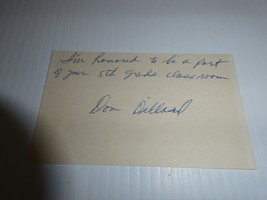 I'm honored to be a part
of your 5th grade classroom
Don Dillard